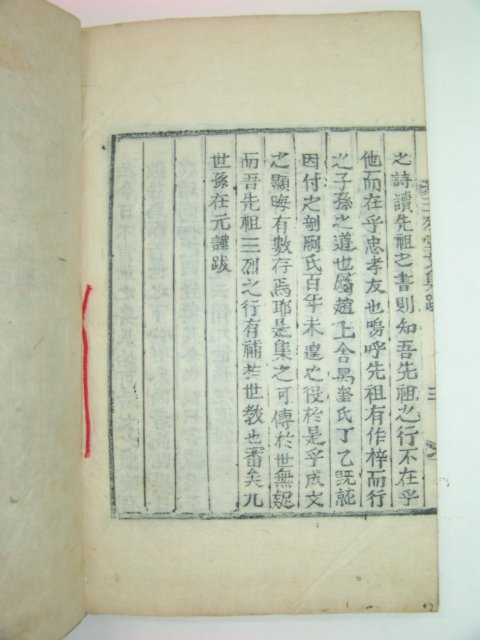 三烈堂文集跋
三
之詩讀先祖之書則知吾先祖之行不在乎
他而在乎忠孝友也嗚呼先祖有作梓而行
之子孫之道也屬趙上舍禹奎氏丁乙既訖
因付之剞劂氏百年未遑之役於是乎成文
之顯晦有數存焉耶是集之可傳於世無疑
而吾先祖三烈之行有補於世敎也審矣九
世孫在元謹跋